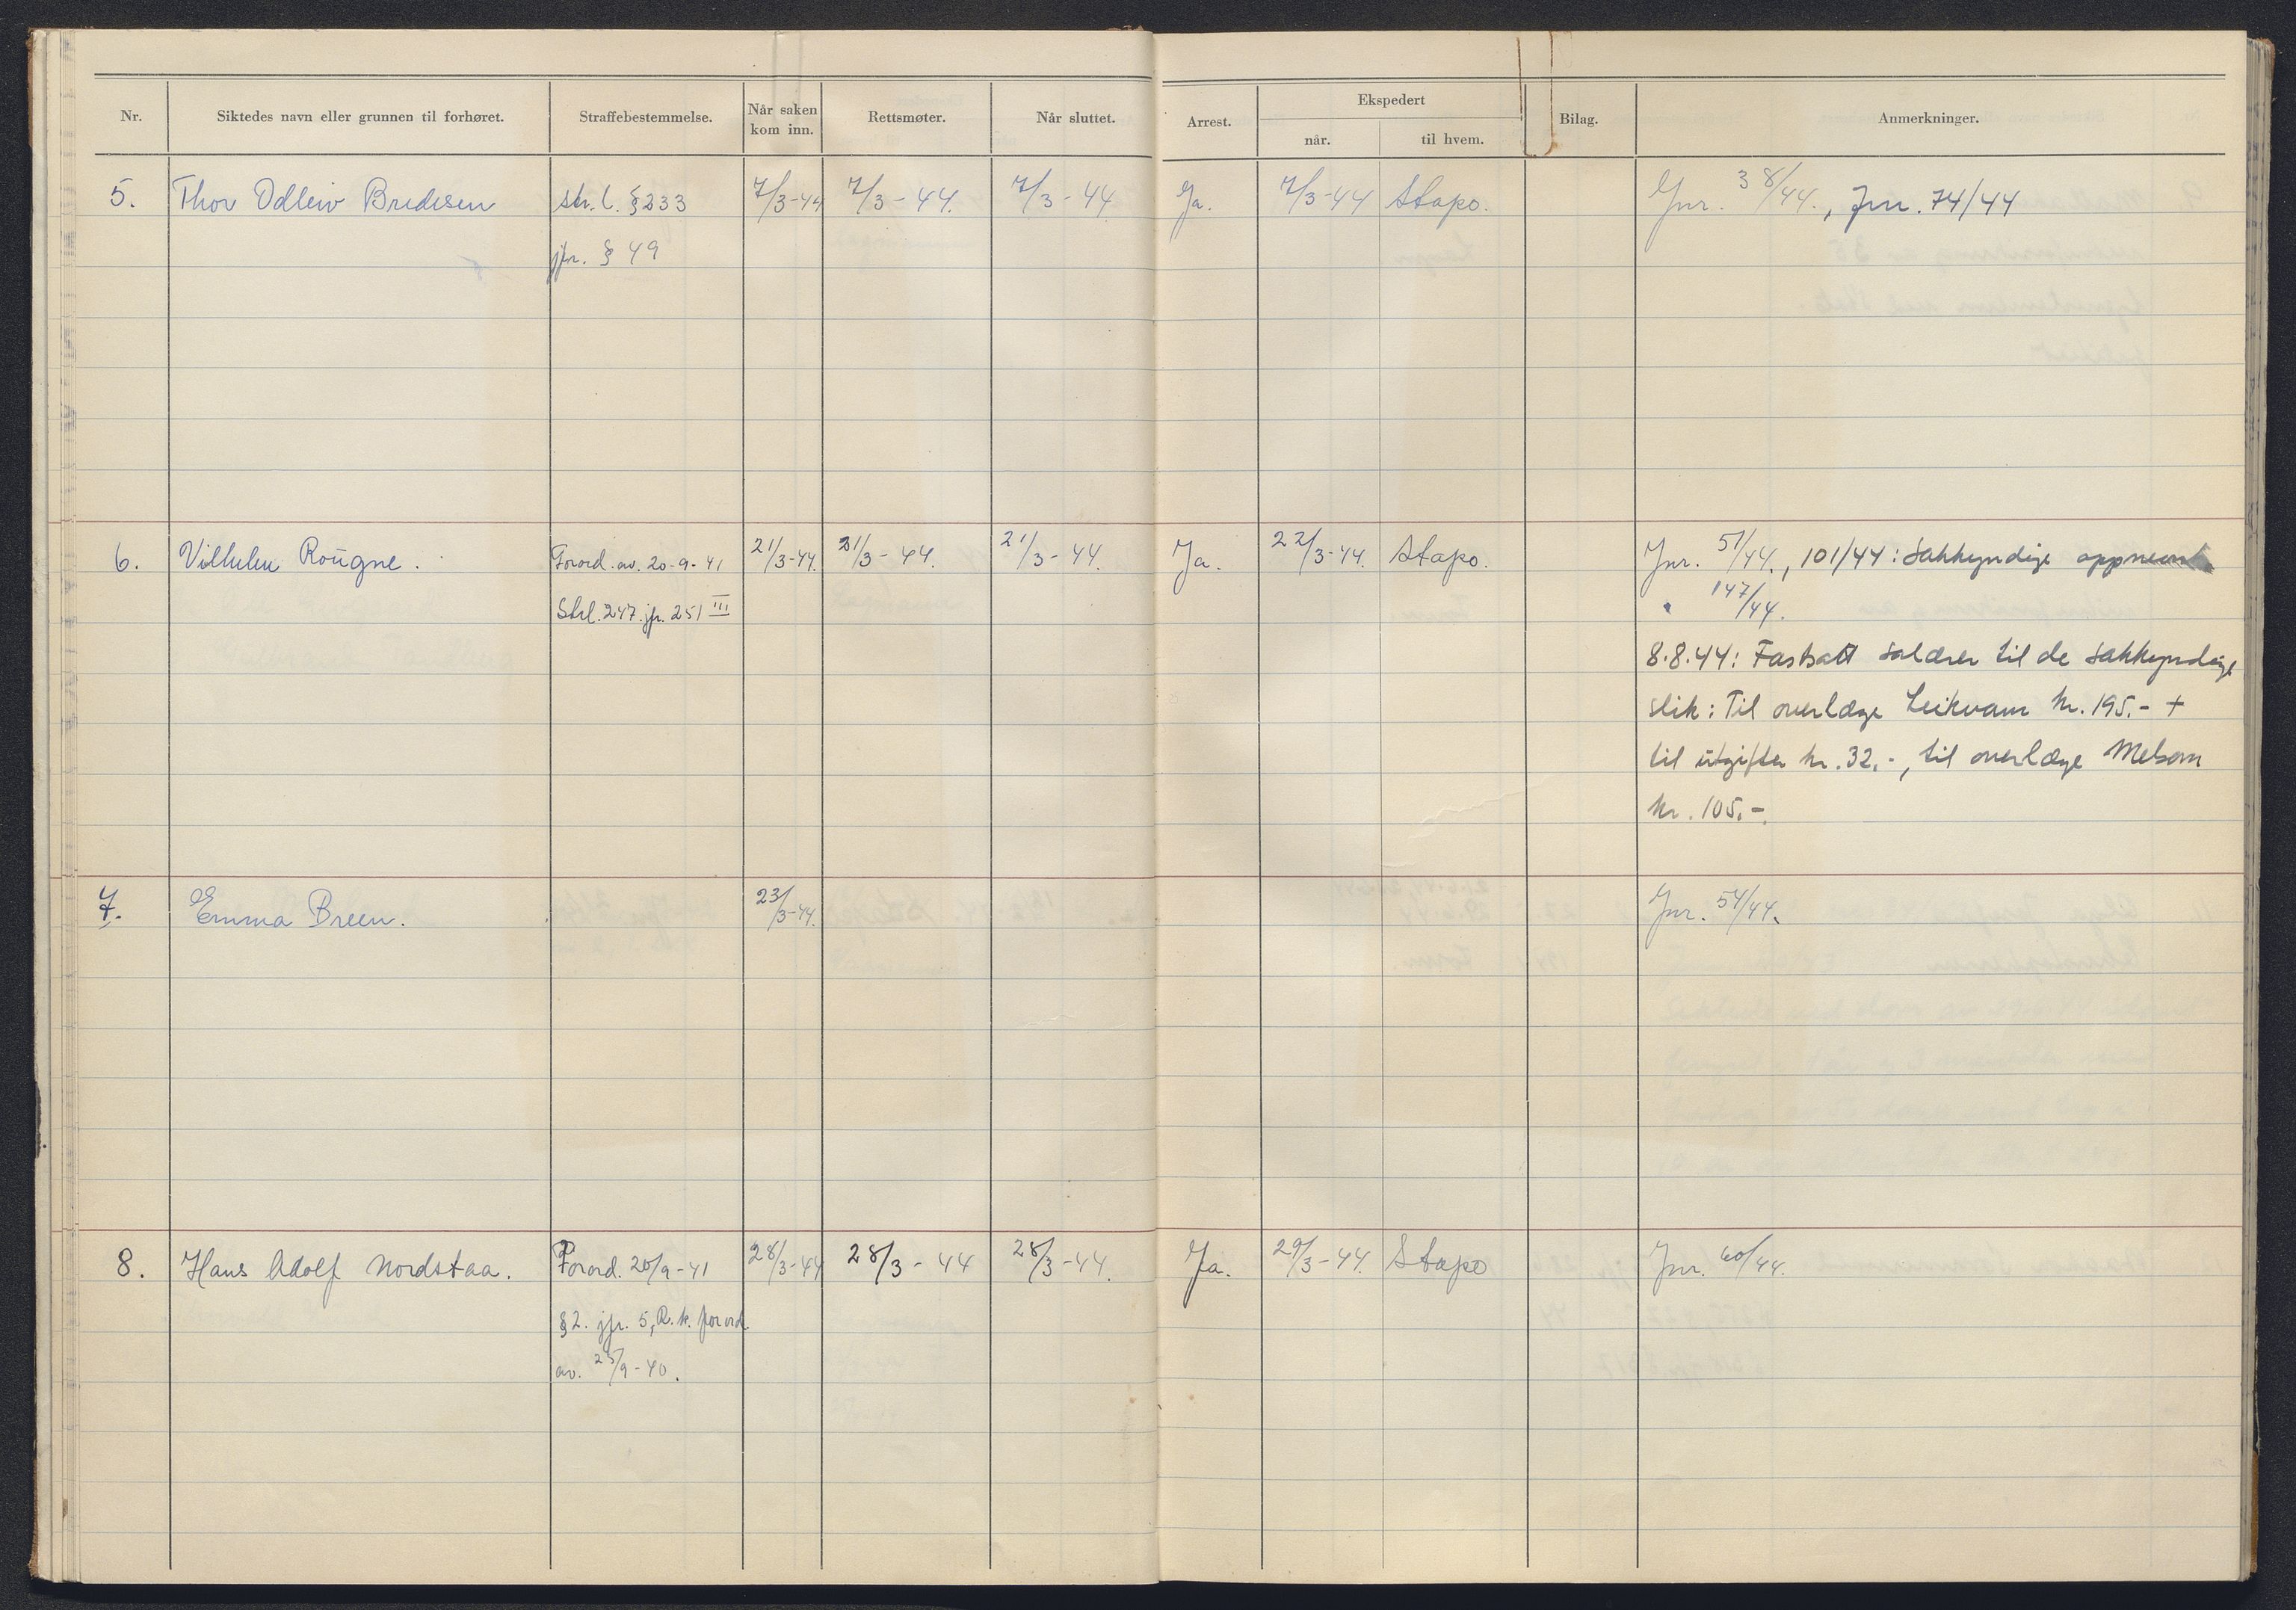 Nr. Siktedes navn eller grunnen til forhøret. Straffebestemmelse. Når saken kom inn. Rettsmøter. Når sluttet. Arrest. Ekspedert når. til hvem. Bilag. Anmerkninger.
5. Thor Odleiv Bredesen str. l. § 233 7/3-44 7/3-44. 7/3-44 Ja. 7/3-44 Stapo. Jnr. 38/44., Jnr. 74/44
jfr. § 49
6. Vilhelm Rougne. Forord. av. 20-9-41 21/3-44. 21/3-44. 21/3-44. Ja. 22/3-44. Stapo. Jnr. 51/44., 101/44: Sakkyndige oppnevnt
Strl. 247. jfr. 251 III " 147/44.
8.8.44: Fastsatt salærer til de sakkyndige
slik: Til overlæge Leikvam kr. 195.- +
til utgifter kr. 32.-, til overlæge Melsom
kr. 105.-.
7. Emma Breen. 23/3-44. Jnr. 54/44.
8. Hans Adolf Nordstaa. Forord. 20/9-41 28/3-44 28/3-44 28/3-44. Ja. 29/3-44. Stapo Jnr. 60/44.
§2. jfr. 5, R.k. forord.
av. 25/9-40.